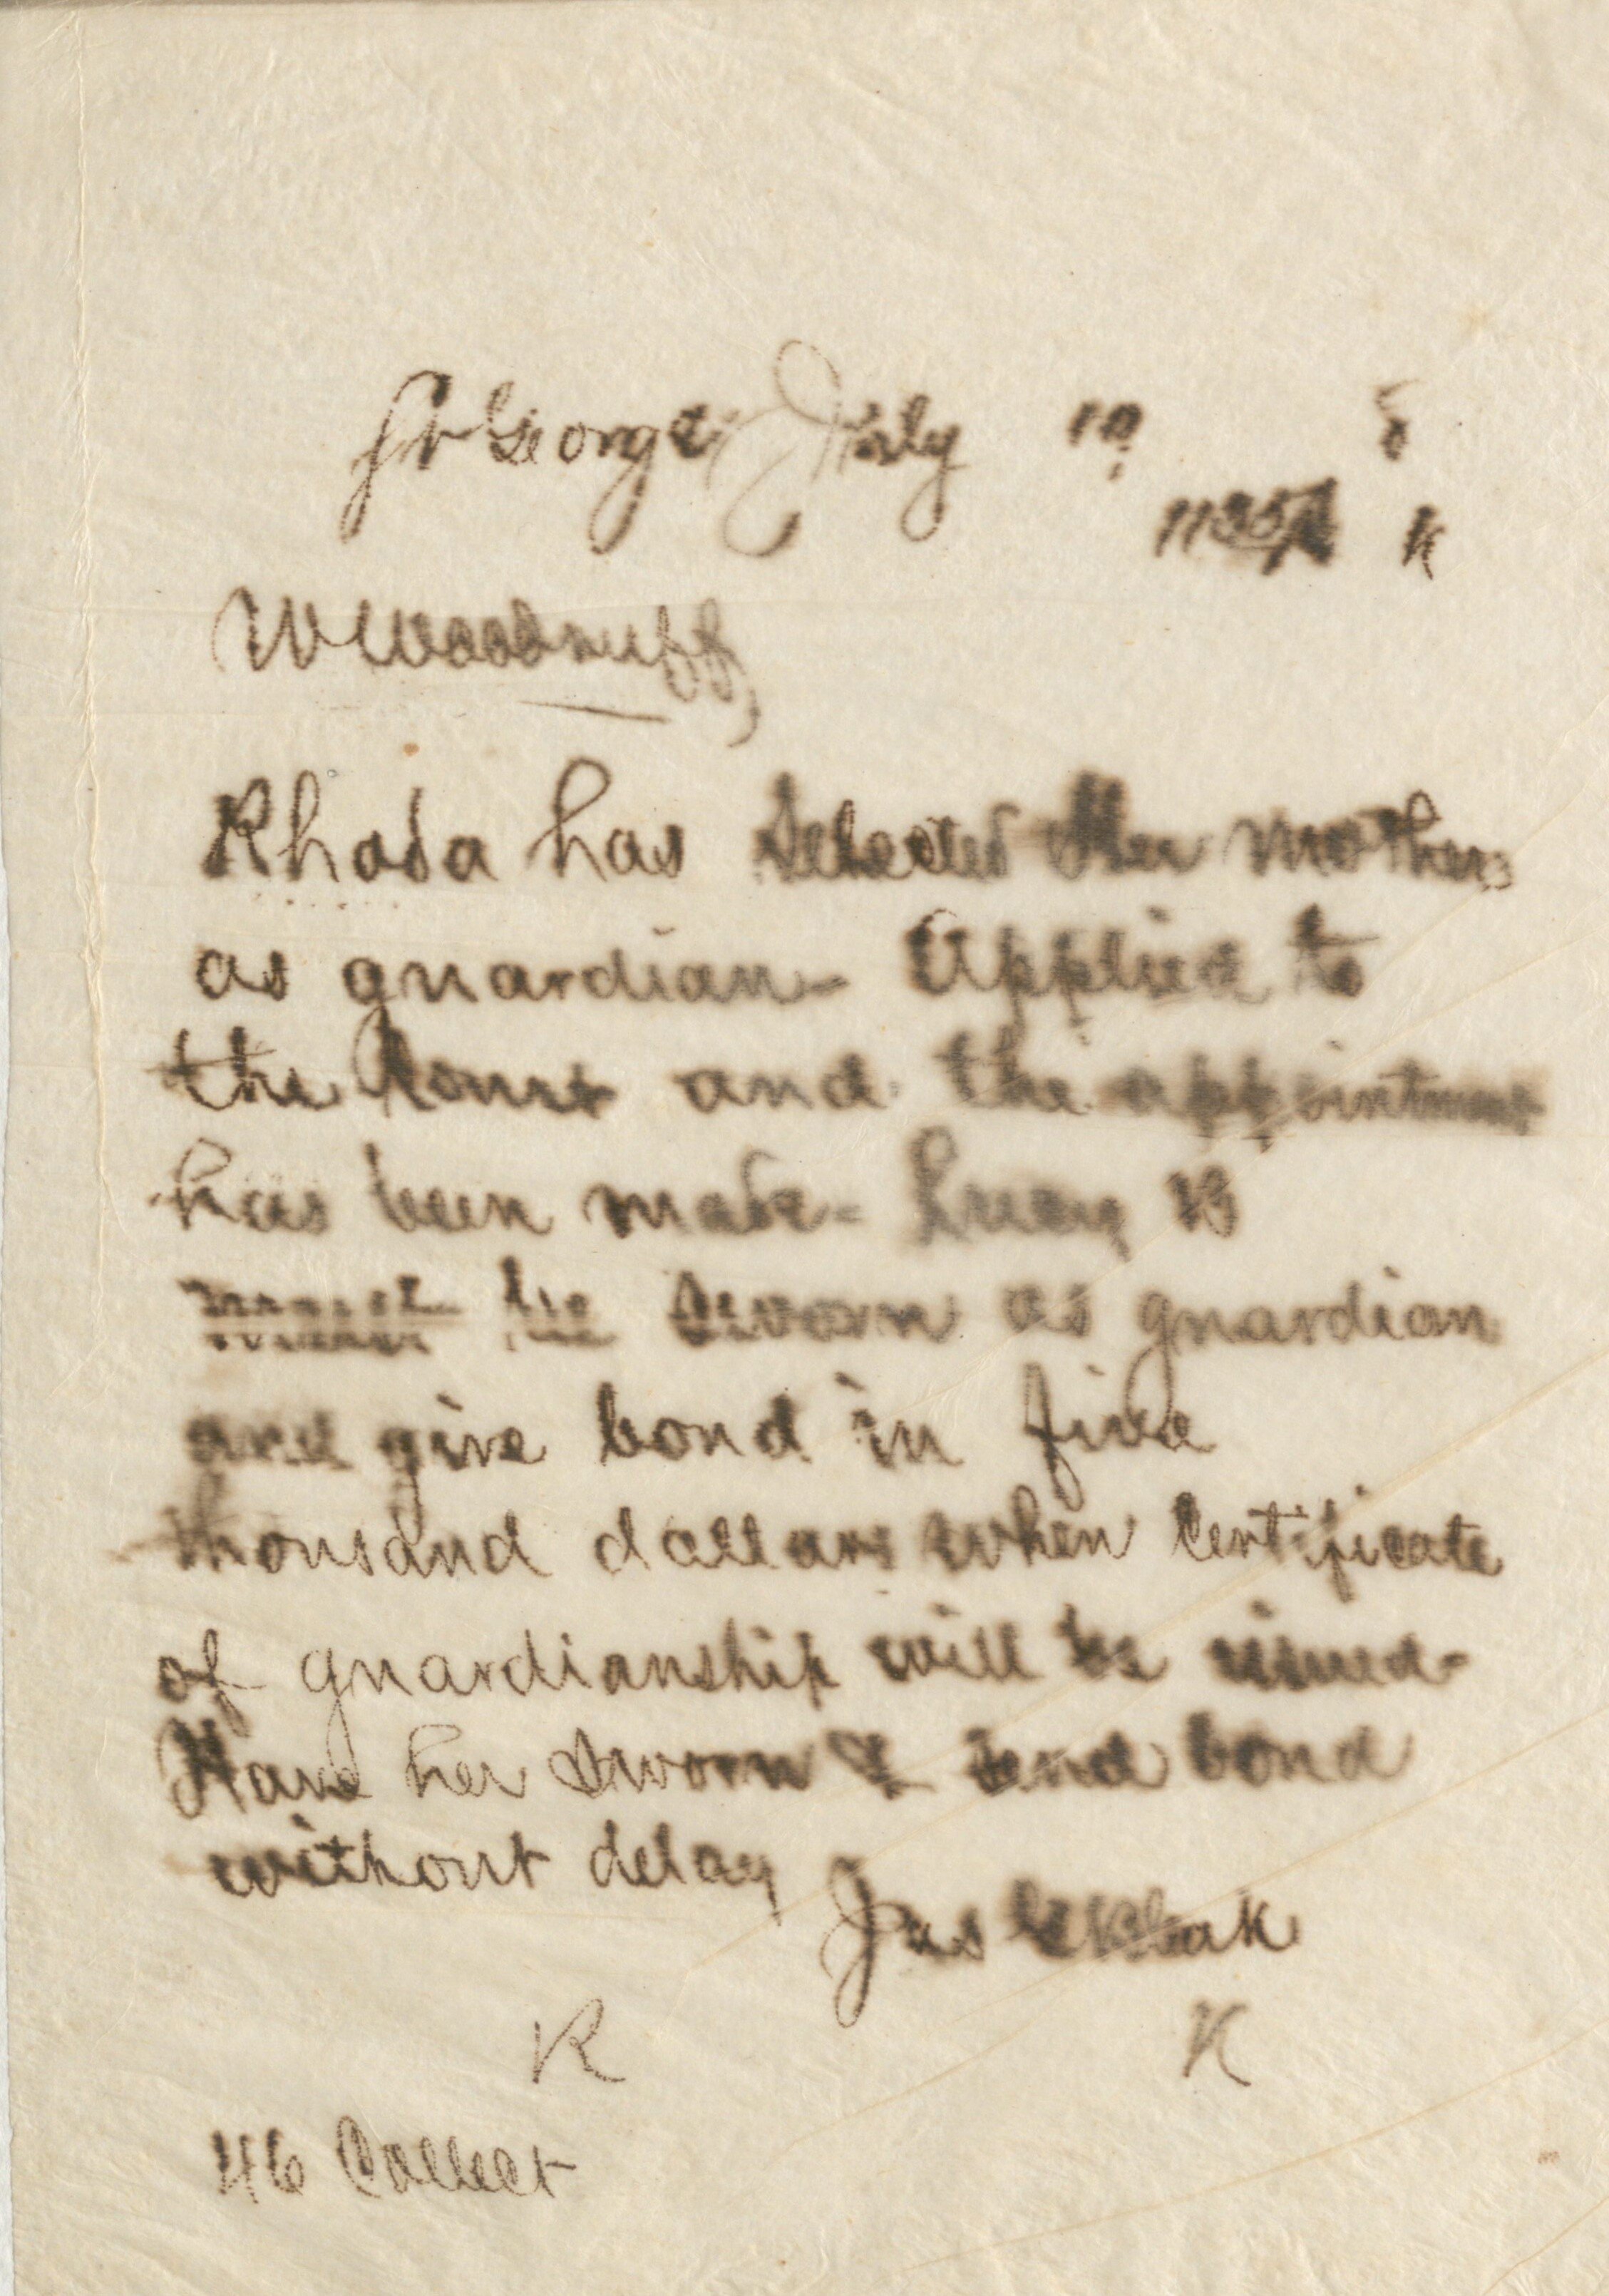 St George July 19 8
1135A K
W Woodruff,
Rhoda has selected Her mother
as guardian - Applied to
the Court and the appointment
has been made - Lucy B
must be sworn as guardian
and give bond in five
thousand dollars when Certificate
of guardianship will be issued -
Have her sworn & send bond
without delay
Jas G Bleak
K K
46 Collect